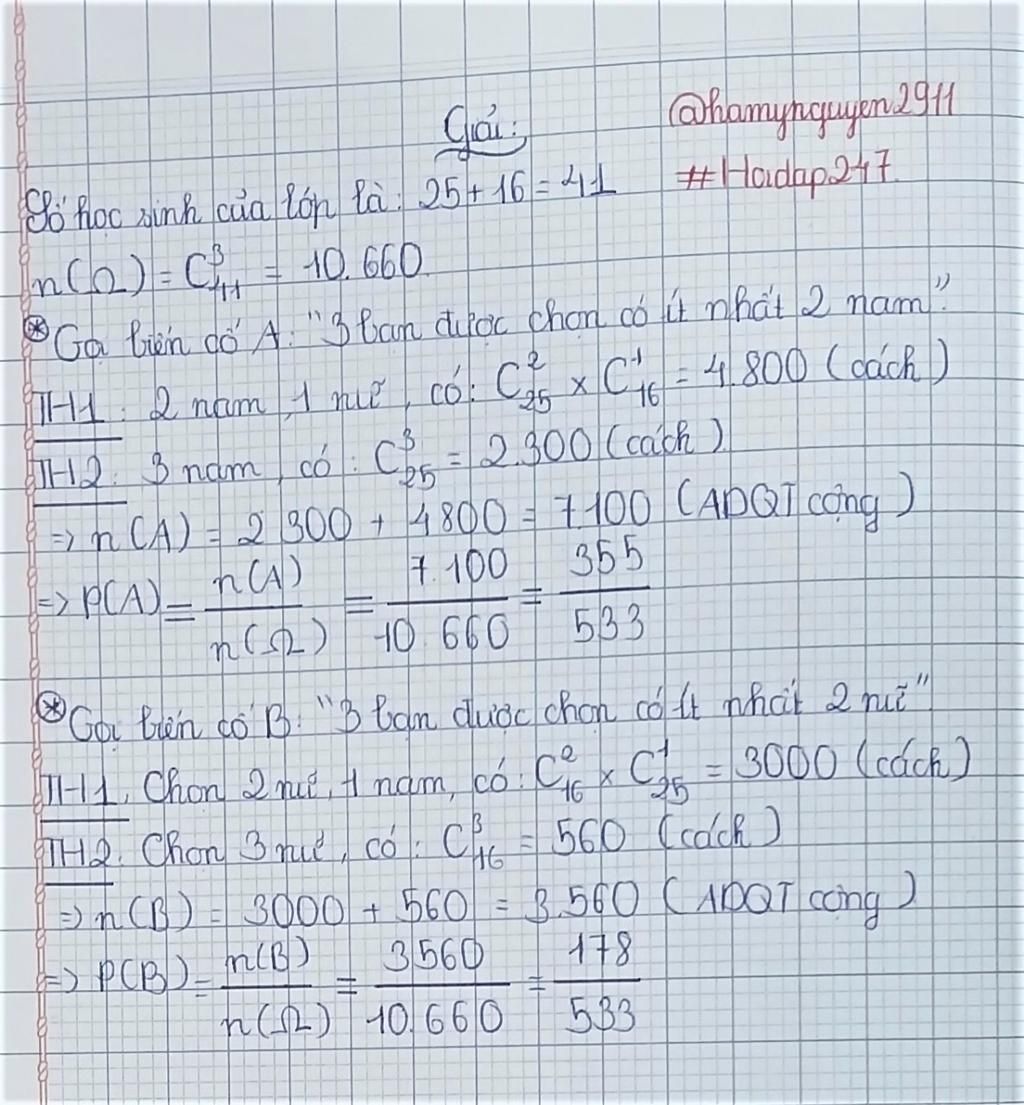 Giải:
@hamynguyen2911
#Hoidap247
Số học sinh của lớp là: 25 + 16 = 41
n(Ω) = C³₄₁ = 10.660
* Gọi biến cố A: "3 bạn được chọn có ít nhất 2 nam".
TH1: 2 nam, 1 nữ, có: C²₂₅ × C¹₁₆ = 4.800 (cách)
TH2: 3 nam, có: C³₂₅ = 2.300 (cách)
=> n(A) = 2300 + 4800 = 7.100 (ADQT cộng)
=> P(A) = n(A)/n(Ω) = 7.100/10.660 = 355/533
* Gọi biến cố B: "3 bạn được chọn có ít nhất 2 nữ"
TH1. Chọn 2 nữ, 1 nam, có: C²₁₆ × C¹₂₅ = 3000 (cách)
TH2. Chọn 3 nữ, có: C³₁₆ = 560 (cách)
=> n(B) = 3000 + 560 = 3.560 (ADQT cộng)
=> P(B) = n(B)/n(Ω) = 3560/10.660 = 178/533